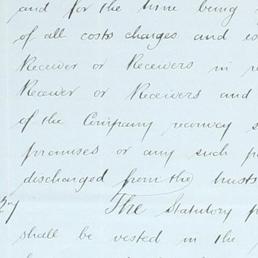 and for the time being
of all costs charges and ex
Receiver or Receivers in r
Receiver or Receivers and
of the Company reconvey s
premises or any such p
discharged from the trusts
27 The Statutory p
shall be vested in the